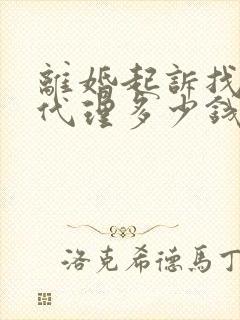 離婚起訴找
代理多少錢
洛克希德馬丁